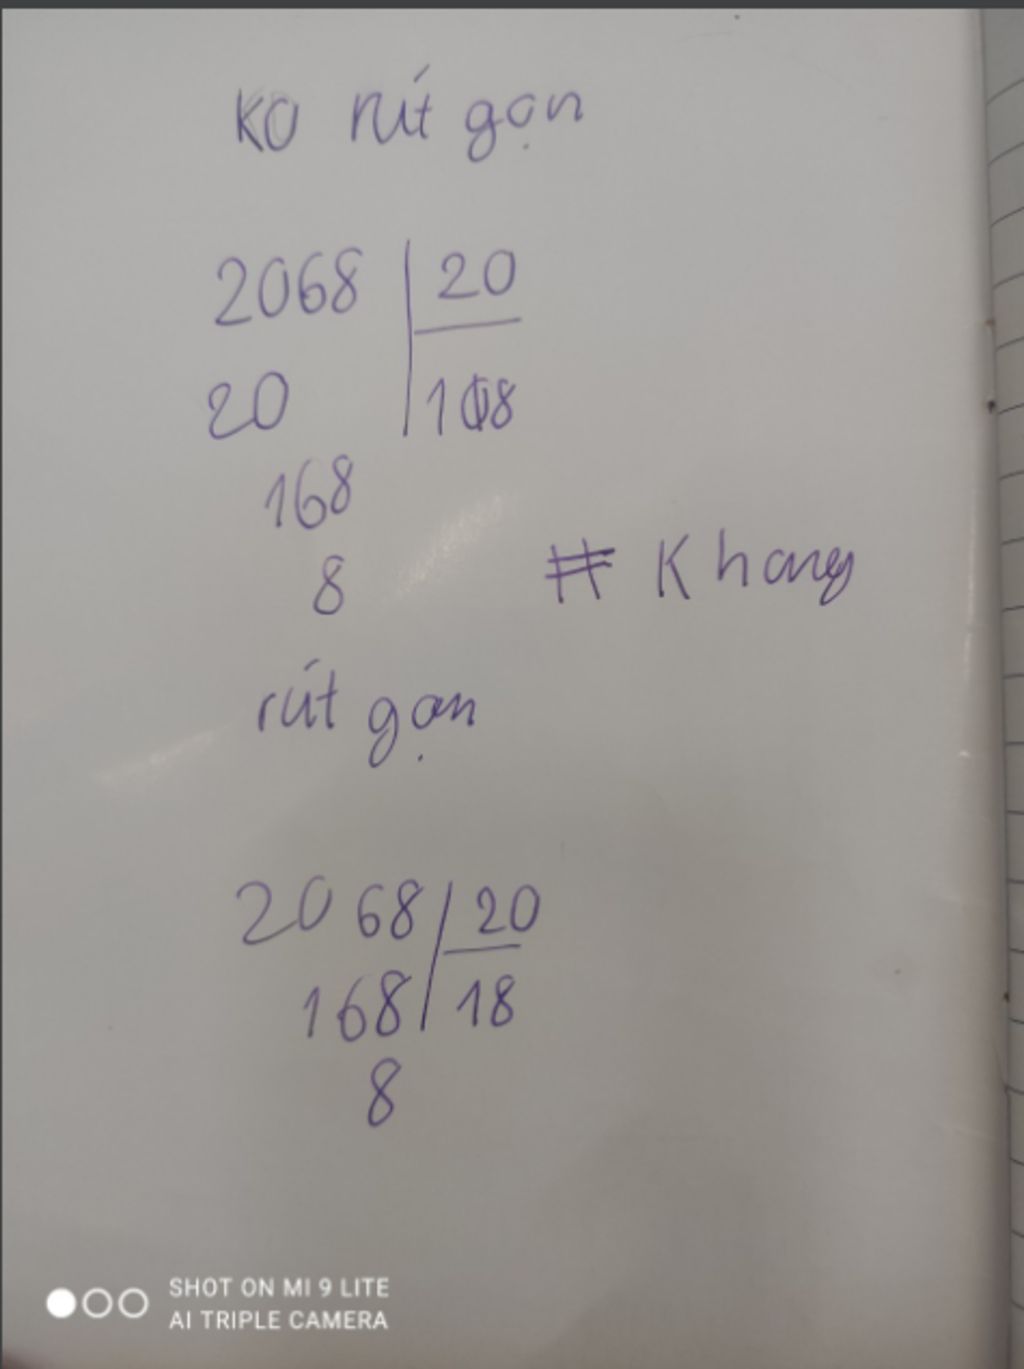 ko rút gọn
2068 | 20
20 | 108
168
8
# Khang
rút gọn
2068 | 20
168 | 18
8
SHOT ON MI 9 LITE
AI TRIPLE CAMERA